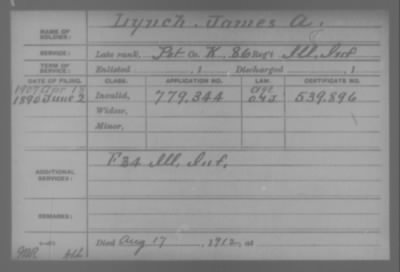 NAME OF SOLDIER: Lynch, James A.
SERVICE: Late rank, Pvt Co. K, 86 Reg't Ill. Inf
TERM OF SERVICE: Enlisted , 1 Discharged , 1
DATE OF FILING. CLASS. APPLICATION NO. LAW. CERTIFICATE NO.
1907 Apr 18
1890 June 2 Invalid, 779.344 539.896
Widow,
Minor,
ADDITIONAL SERVICES: F 34 Ill. Inf.
REMARKS:
Died Aug 17, 1912, at